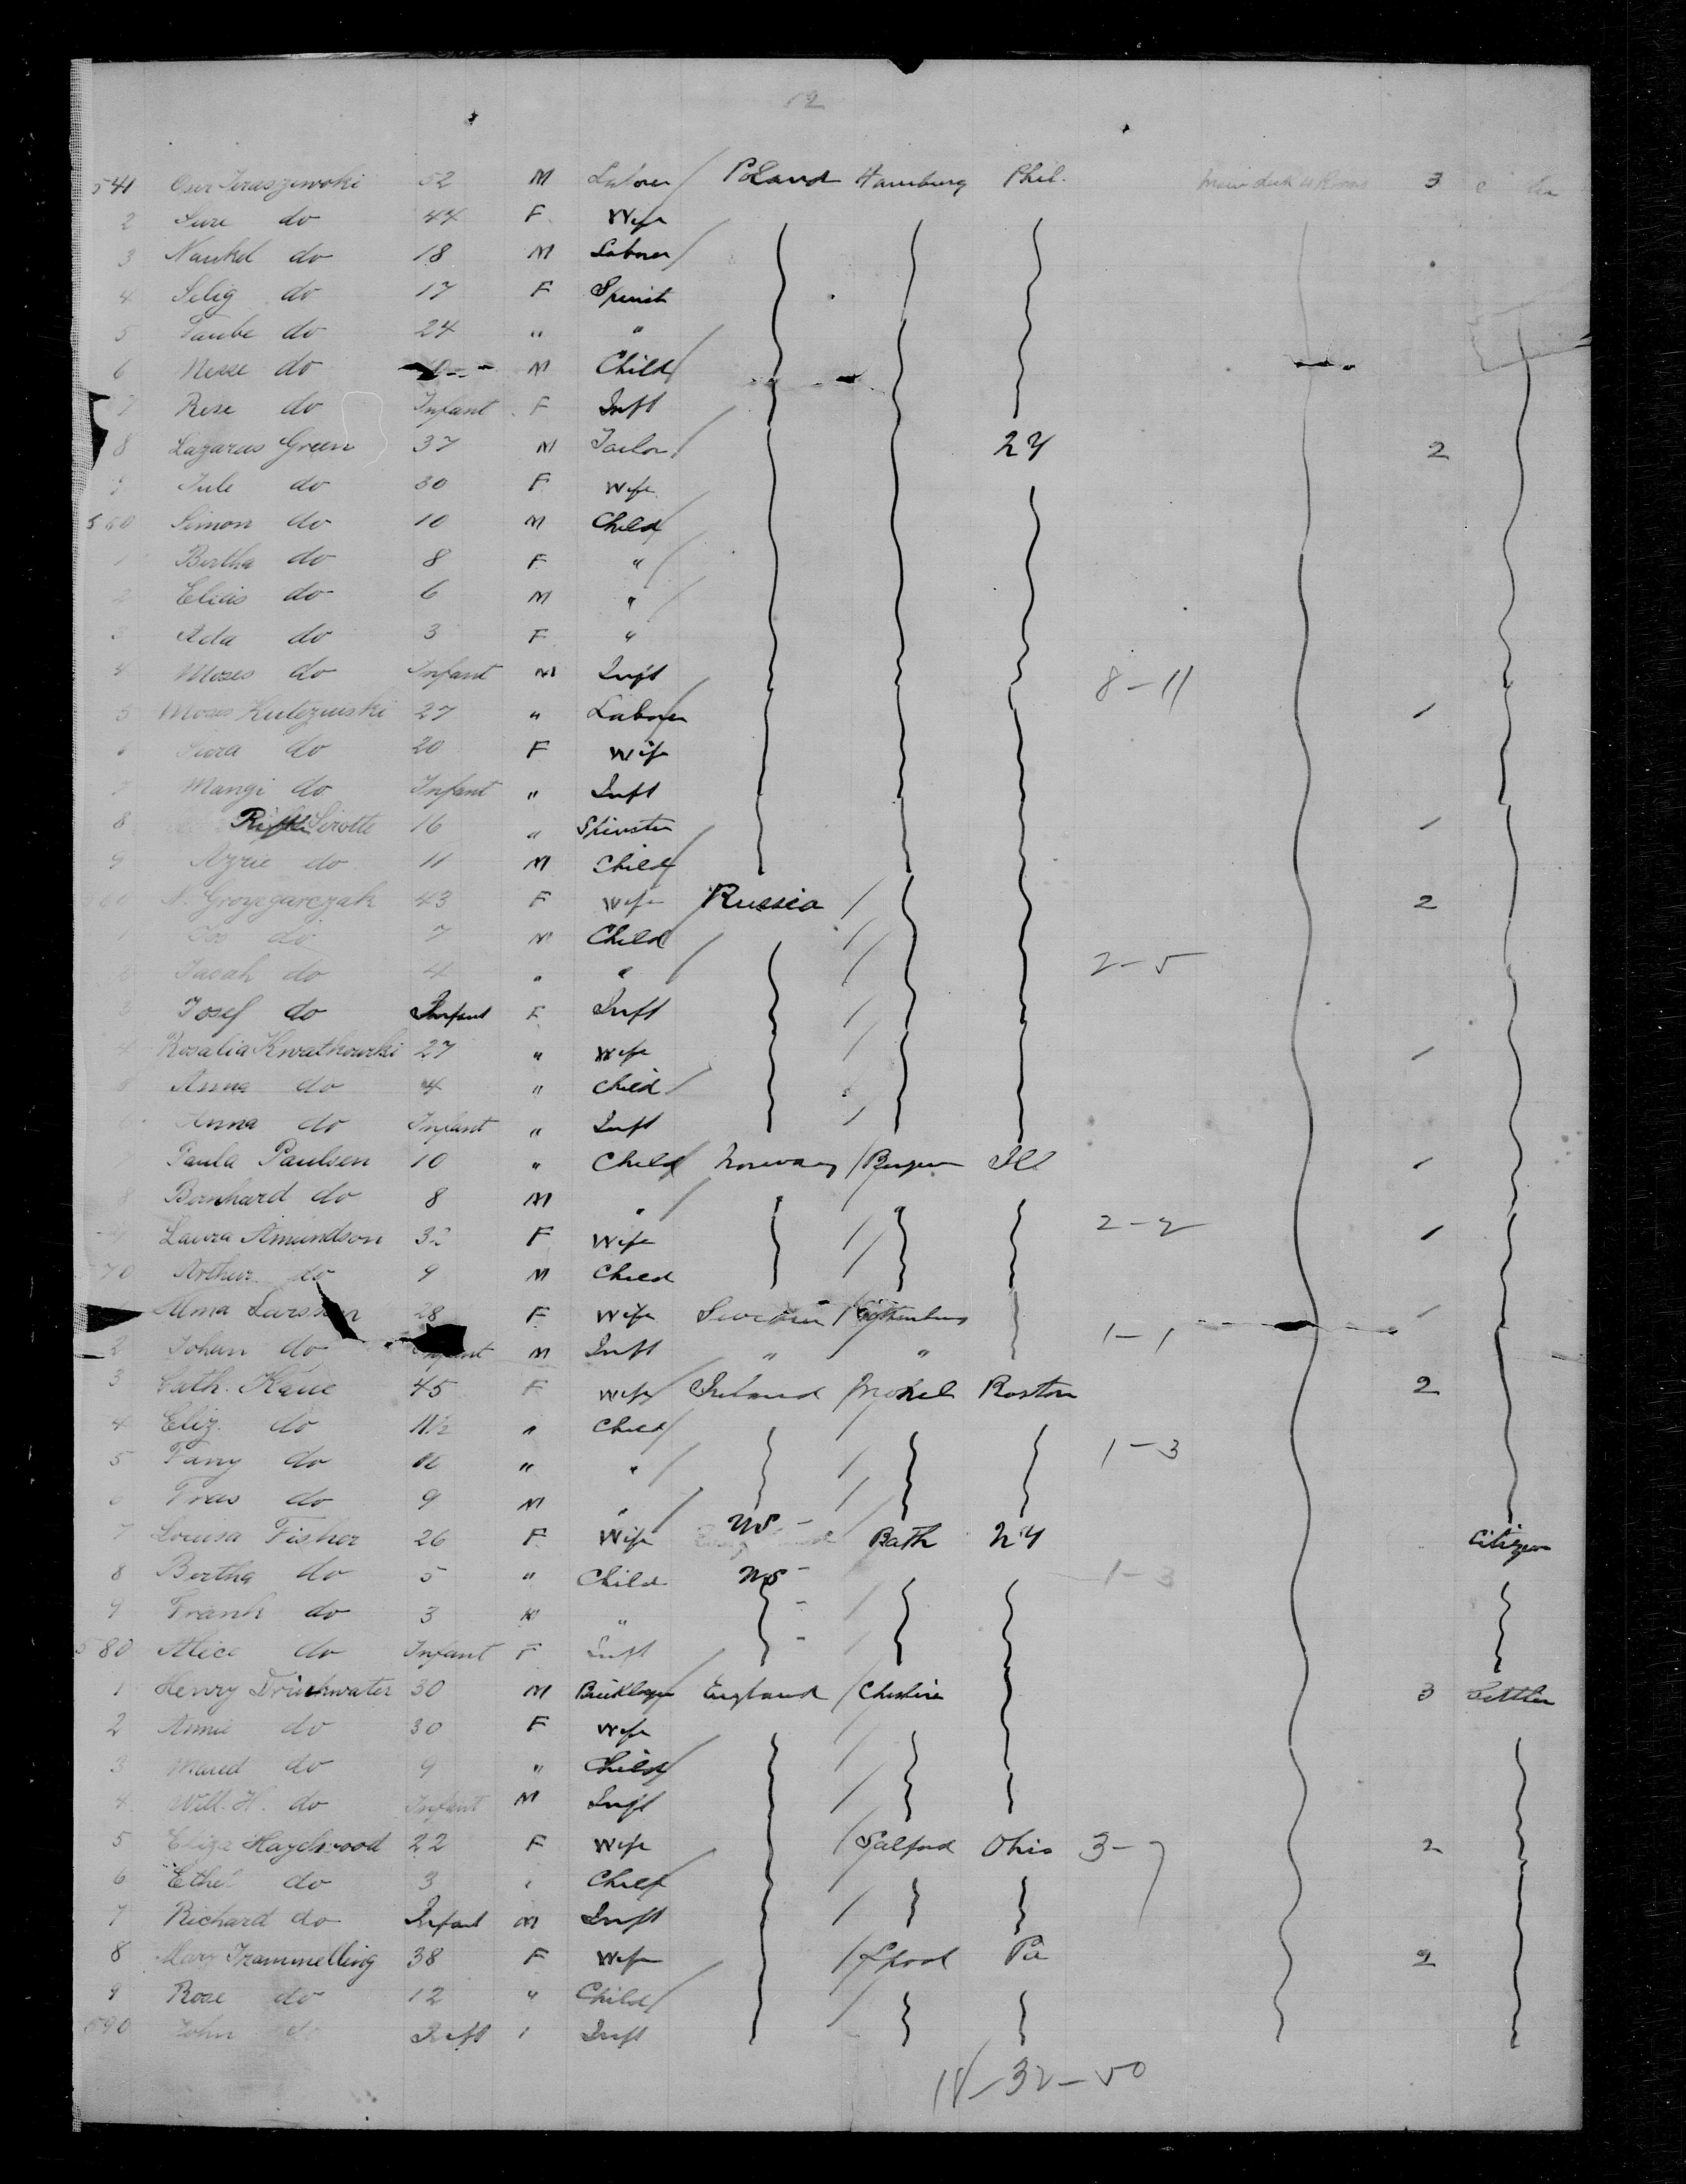 12
541 Oser Jeraszewski 52 M Laborer Poland Hamburg Phil. Main deck 4 Rooms 3
2 Sure do 44 F Wife
3 Naukel do 18 M Laborer
4 Selig do 17 F Spinst
5 Taube do 24 " "
6 Nesse do M Child
7 Rese do Infant F Inft
8 Lazarus Green 37 M Tailor NY 2
9 Jule do 30 F Wife
550 Simon do 10 M Child
1 Bertha do 8 F "
2 Elias do 6 M "
3 Ada do 3 F "
4 Moses do Infant M Inft 8-11
5 Moses Kulezinski 27 " Laborer 1
6 do 20 F Wife
7 Mangi do Infant " Inft
8 Sirotte 16 " Spinster 1
9 Azrie do 11 M Child
560 N. Groyegarczak 43 F Wife Russia 2
1 do 7 M Child
2 do 4 " " 2-5
3 Josef do Infant F Inft
4 Rosalia Kwatkowski 27 " Wife 1
5 Anna do 4 " Child
6 Anna do Infant " Inft
7 Paula Paulsen 10 " Child Norway Bergen Ill 1
8 Bernhard do 8 M "
9 Laura Amundson F Wife 2-2 1
70 Arthur do 9 M Child
Alma Larsson 28 F Wife Sweden Gothenburg 1
2 Johan do Infant M Inft " " 1-1
3 Cath. Kane 45 F Wife Ireland Boston 2
4 Eliz. do 11½ " Child
5 Fany do 10 " " 1-3
6 Fras do 9 M "
7 Louisa Fisher 26 F Wife US Bath NY Citizen
8 Bertha do 5 " Child US 1-3
9 Frank do 3 M "
580 Alice do Infant F Inft
1 Henry Drinkwater 30 M Bricklayer England Cheshire 3 Settler
2 Annie do 30 F Wife
3 Maud do 9 " Child
4 Will. H. do Infant M Inft
5 Eliza Haydnwood 22 F Wife Salford Ohio 3-7 2
6 Ethel do 3 " Child
7 Richard do Infant M Inft
8 Mary Trammelling 38 F Wife Lpool Pa 2
9 Rose do 12 " Child
590 John do Inft " Inft
18-32-50